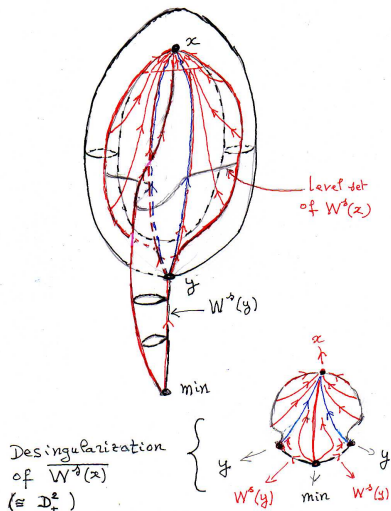 x
level set
of W^s(x)
y
W^s(y)
min
x
Desingularization
of \overline{W^s(x)}
(≅ D^2_+)
y
y
W^s(y)
min
W^s(y)